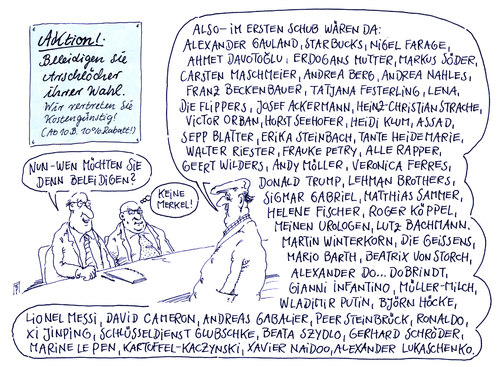 AKtion!
Beleidigen Sie
Arschlöcher
ihrer Wahl.
Wir vertreten Sie
Kostengünstig!
(Ab 10 B. 10% Rabatt!)
NUN-WEN MÖCHTEN SIE
DENN BELEIDIGEN?
KEINE
MERKEL!
ALSO-IM ERSTEN SCHUB WÄREN DA:
ALEXANDER GAULAND, STARBUCKS, NIGEL FARAGE,
AHMET DAVOTOĞLU, ERDOGANS MUTTER, MARKUS SÖDER,
CARSTEN MASCHMEIER, ANDREA BERG, ANDREA NAHLES,
FRANZ BECKENBAUER, TATJANA FESTERLING, LENA,
DIE FLIPPERS, JOSEF ACKERMANN, HEINZ-CHRISTIAN STRACHE,
VICTOR ORBAN, HORST SEEHOFER, HEIDI KLUM, ASSAD,
SEPP BLATTER, ERIKA STEINBACH, TANTE HEIDEMARIE,
WALTER RIESTER, FRAUKE PETRY, ALLE RAPPER,
GEERT WILDERS, ANDY MÖLLER, VERONICA FERRES,
DONALD TRUMP, LEHMAN BROTHERS,
SIGMAR GABRIEL, MATTHIAS SAMMER,
HELENE FISCHER, ROGER KÖPPEL,
MEINEN UROLOGEN, LUTZ BACHMANN.
MARTIN WINTERKORN, DIE GEISSENS,
MARIO BARTH, BEATRIX VON STORCH,
ALEXANDER DO... DOBRINDT,
GIANNI INFANTINO, MÜLLER-MILCH,
WLADIMIR PUTIN, BJÖRN HÖCKE,
LIONEL MESSI, DAVID CAMERON, ANDREAS GABALIER, PEER STEINBRÜCK, RONALDO,
XI JINPING, SCHLÜSSELDIENST GLUBSCHKE, BEATA SZYDLO, GERHARD SCHRÖDER,
MARINE LE PEN, KARTOFFEL-KACZYNSKI, XAVIER NAIDOO, ALEXANDER LUKASCHENKO.